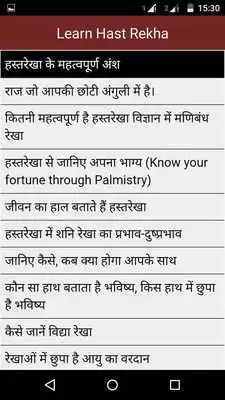 15:30
Learn Hast Rekha
हस्तरेखा के महत्वपूर्ण अंश
राज जो आपकी छोटी अंगुली में है।
कितनी महत्वपूर्ण है हस्तरेखा विज्ञान में मणिबंध
रेखा
हस्तरेखा से जानिए अपना भाग्य (Know your
fortune through Palmistry)
जीवन का हाल बताते हैं हस्तरेखा
हस्तरेखा में शनि रेखा का प्रभाव-दुष्प्रभाव
जानिए कैसे, कब क्या होगा आपके साथ
कौन सा हाथ बताता है भविष्य, किस हाथ में छुपा
है भविष्य
कैसे जानें विद्या रेखा
रेखाओं में छुपा है आयु का वरदान